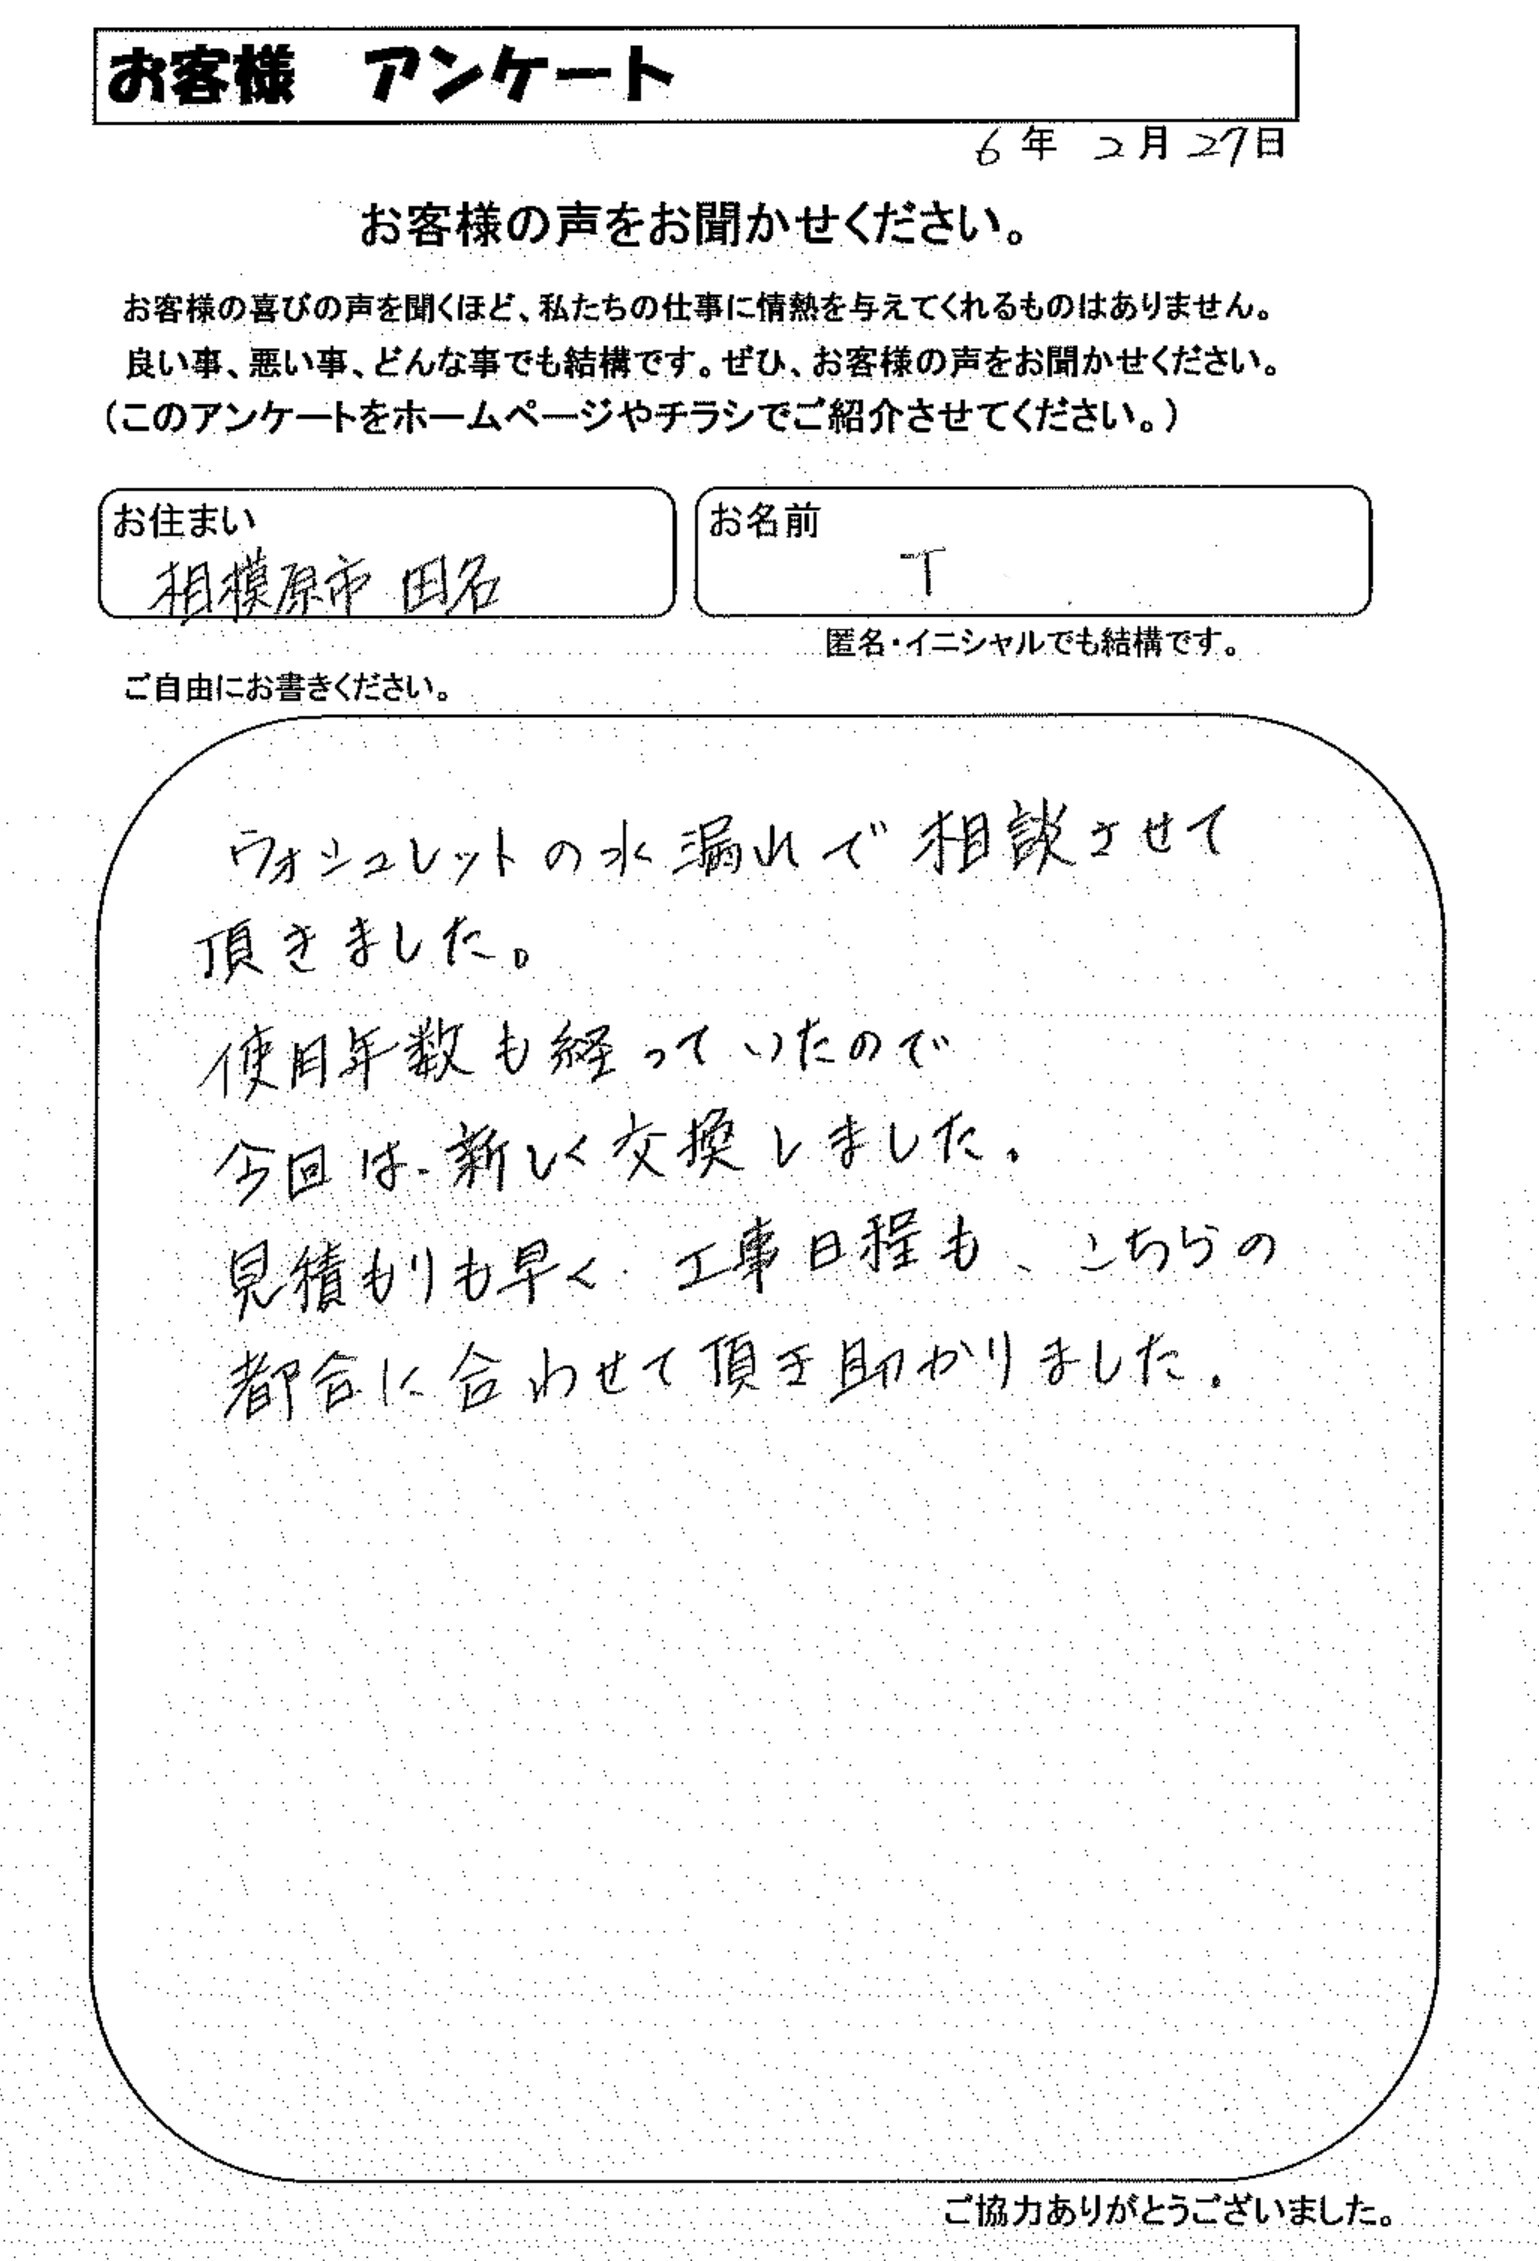 お客様 アンケート
6年 2月27日
お客様の声をお聞かせください。
お客様の喜びの声を聞くほど、私たちの仕事に情熱を与えてくれるものはありません。
良い事、悪い事、どんな事でも結構です。ぜひ、お客様の声をお聞かせください。
(このアンケートをホームページやチラシでご紹介させてください。)
お住まい
相模原市 田名
お名前
T
匿名・イニシャルでも結構です。
ご自由にお書きください。
ウォシュレットの水漏れで相談させて
頂きました。
使用年数も経っていたので
今回は、新しく交換しました。
見積もりも早く、工事日程も、こちらの
都合に合わせて頂き助かりました。
ご協力ありがとうございました。